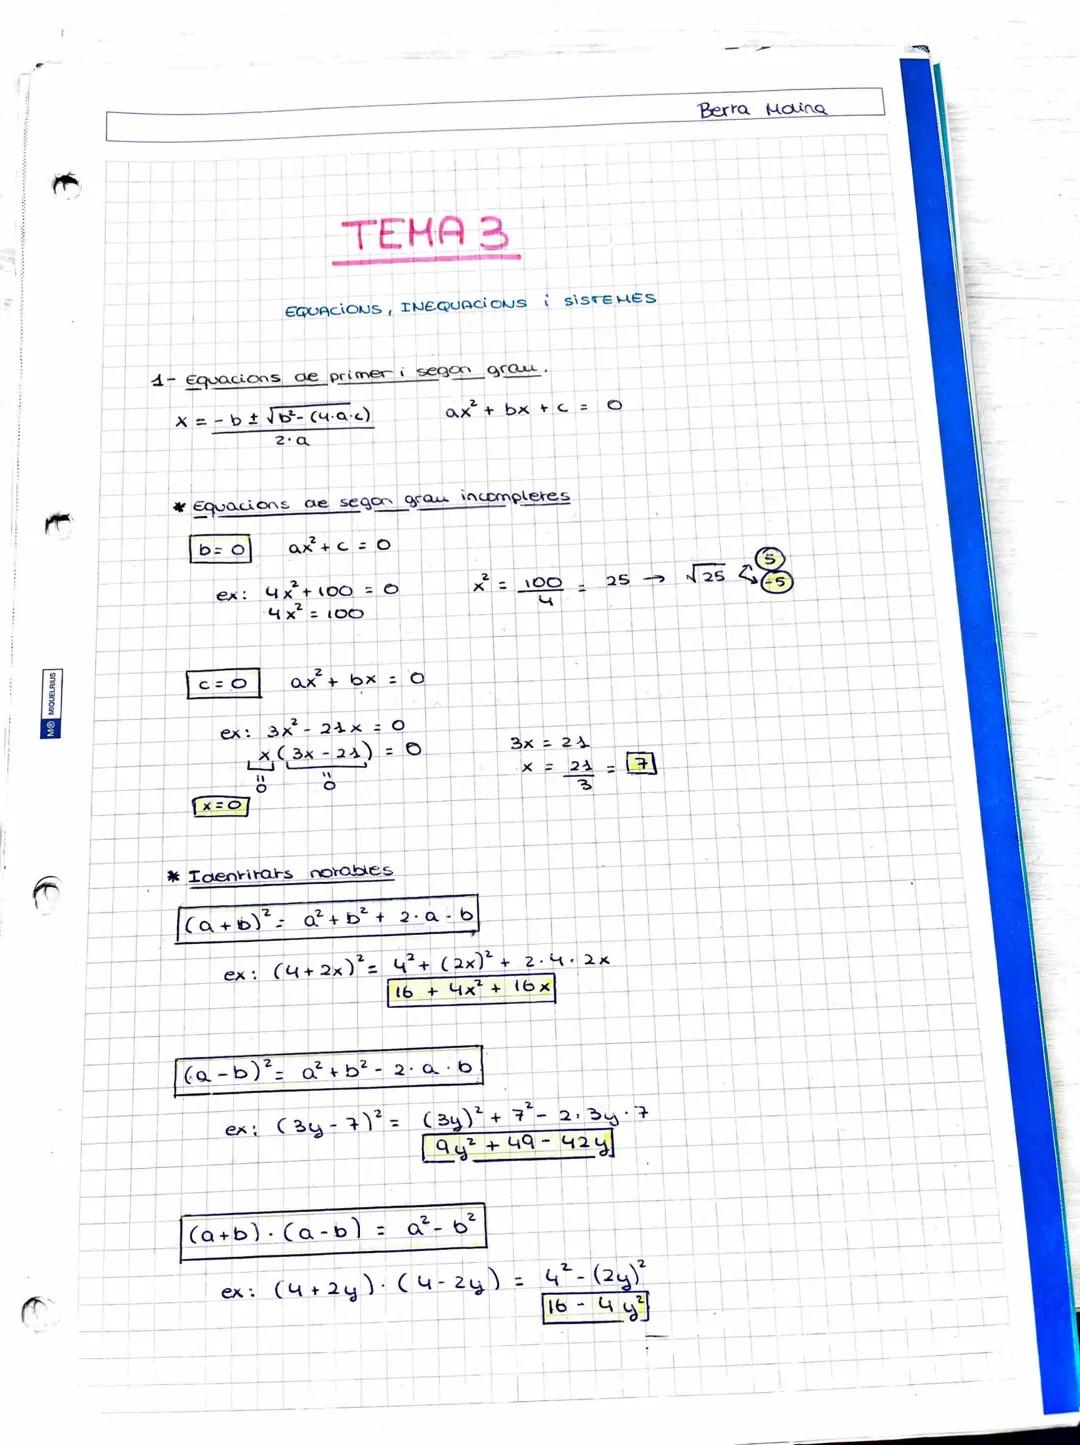 Berta Molina
TEMA 3
EQUACIONS, INEQUACIONS i SISTEMES
1- Equacions de primer i segon grau.
x = -b ± √b² - (4·a·c) / 2·a    ax² + bx + c = 0
* Equacions de segon grau incompletes
b = 0    ax² + c = 0
ex: 4x² + 100 = 0    x² = 100/4 = 25 → √25 5 -5
4x² = 100
c = 0    ax² + bx = 0
ex: 3x² - 21x = 0
x(3x - 21) = 0    3x = 21
x = 21/3 = 7
= 0    = 0
x = 0
* Identitats notables
(a+b)² = a² + b² + 2·a·b
ex: (4+2x)² = 4² + (2x)² + 2·4·2x
16 + 4x² + 16x
(a-b)² = a² + b² - 2·a·b
ex: (3y-7)² = (3y)² + 7² - 2·3y·7
9y² + 49 - 42y
(a+b)·(a-b) = a² - b²
ex: (4+2y)·(4-2y) = 4² - (2y)²
16 - 4y²
MIQUELRIUS